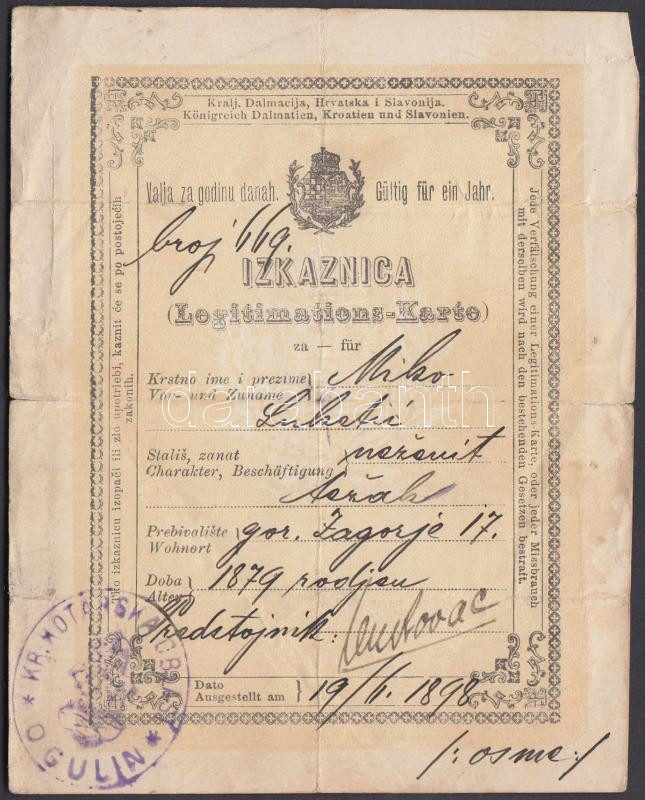 Kralj. Dalmacija, Hrvatska i Slavonija.
Königreich Dalmatien, Kroatien und Slavonien.
Valja za godinu danah. Gültig für ein Jahr.
broj 669.
IZKAZNICA
(Legitimations-Karte)
za — für
Krstno ime i prezime Miko
Vor- und Zuname
Luketić
Stališ, zanat neženit
Charakter, Beschäftigung
težak
Prebivalište gor. Zagorje 17.
Wohnort
Doba 1879 rodjen
Alter
Predstojnik:
Dato
Ausgestellt am 19/6. 1898
/: osme :/
Tko izkaznicu izopači ili zlo upotriebi, kaznit će se po postojećih
zakonih.
Jede Verfälschung einer Legitimations-Karte, oder jeder Missbrauch
mit derselben wird nach den bestehenden Gesetzen bestraft.
* KR. KOTARSKA OBLAST *
OGULIN
darabanth